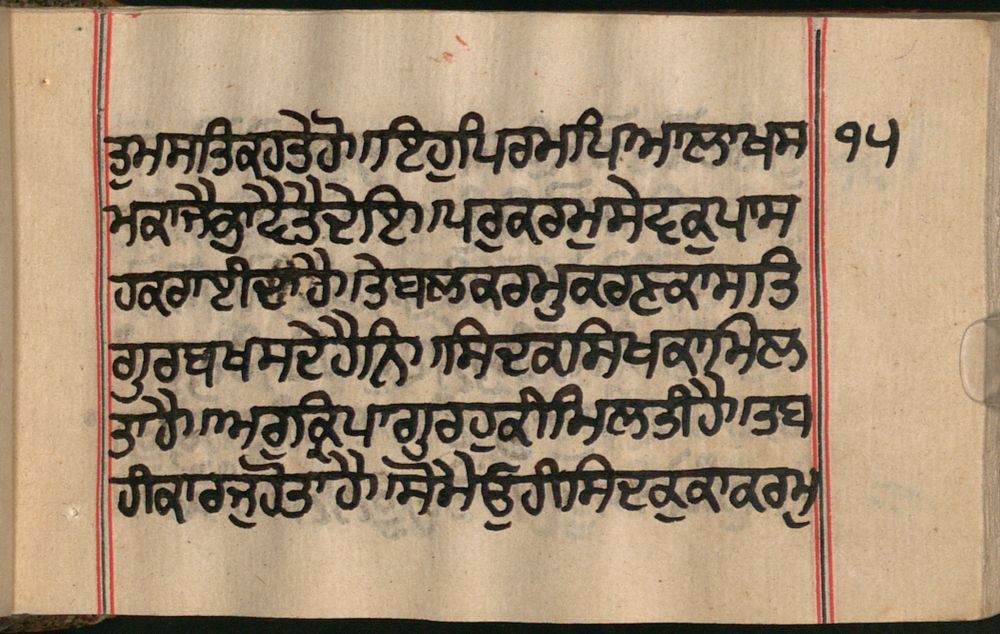 ਤੁਮਸਤਿਕਹਤੇਹੋ॥ਇਹੁਪਿਰਮਪਿਆਲਾਖਸ ੧੫
ਮਕਾਜੈਭਾਵੈਤੈਦੇਇ॥ਪਰੁਕਰਮੁਸੇਵਕੁਪਾਸ
ਹਕਰਾਈਦਾਹੈ॥ਤੇਬਲਕਰਮੁਕਰਣਕਾਸਤਿ
ਗੁਰਬਖਸਦੇਹੈਨਿ॥ਸਿਦਕਸਿਖਕਾਮਿਲ
ਤਾਹੈ॥ਅਰੁਕ੍ਰਿਪਾਗੁਰਹੁਕੀਮਿਲਤੀਹੈ॥ਤਬ
ਹੀਕਾਰਜੁਹੋਤਾਹੈ॥ਸੋਮੈਓੁਹੀਸਿਦਕੁਕਾਕਰਮੁ